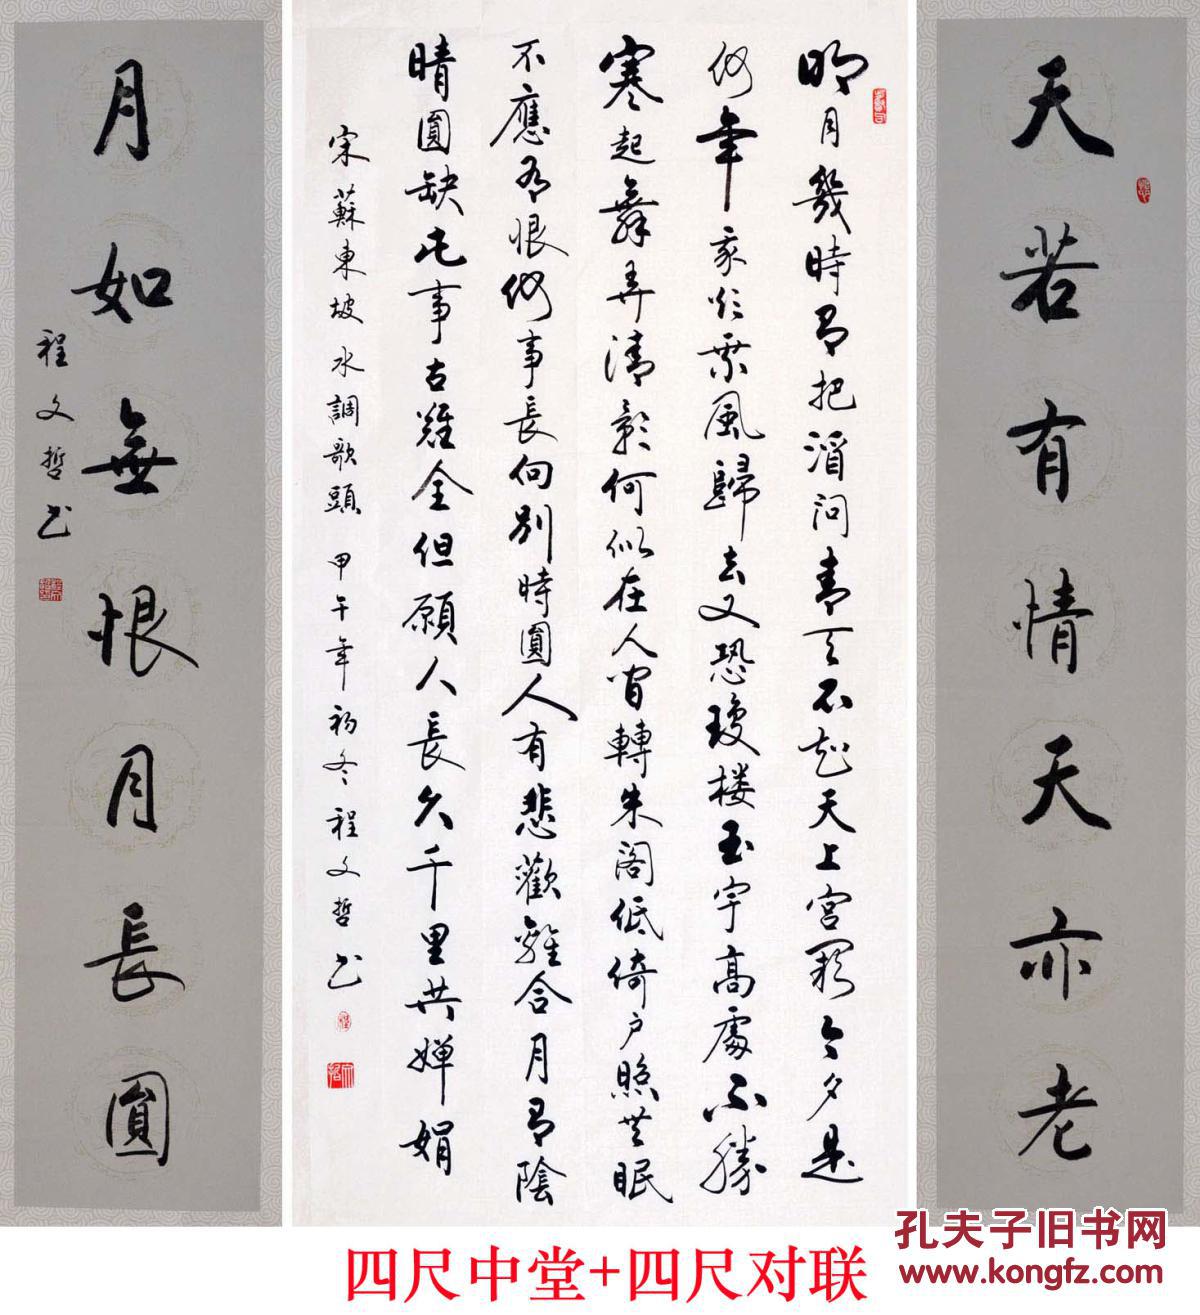 天若有情天亦老
明月幾時有把酒問青天不知天上宮闕今夕是
何年我欲乘風歸去又恐瓊楼玉宇高處不勝
寒起舞弄清影何似在人間轉朱閣低倚户照無眠
不應有恨何事長向別時圓人有悲歡離合月有陰
晴圓缺此事古難全但願人長久千里共嬋娟
宋蘇東坡水調歌頭 甲午年初冬程文哲书
月如無恨月長圓
程文哲书
孔夫子旧书网
www.kongfz.com
四尺中堂+四尺对联